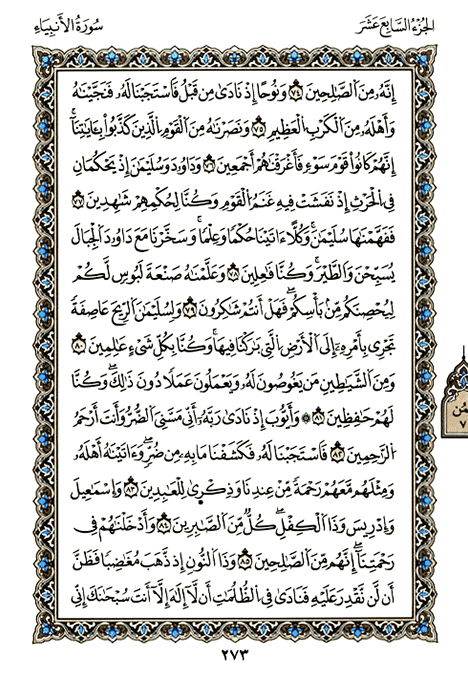 الجزء السابع عشر
سورة الأنبياء
إِنَّهُ مِنَ الصَّٰلِحِينَ ٧٤ وَنُوحًا إِذْ نَادَىٰ مِن قَبْلُ فَاسْتَجَبْنَا لَهُ فَنَجَّيْنَٰهُ
وَأَهْلَهُ مِنَ الْكَرْبِ الْعَظِيمِ ٧٥ وَنَصَرْنَٰهُ مِنَ الْقَوْمِ الَّذِينَ كَذَّبُوا بِـَٔايَٰتِنَا
إِنَّهُمْ كَانُوا قَوْمَ سَوْءٍ فَأَغْرَقْنَٰهُمْ أَجْمَعِينَ ٧٦ وَدَاوُدَ وَسُلَيْمَٰنَ إِذْ يَحْكُمَانِ
فِي الْحَرْثِ إِذْ نَفَشَتْ فِيهِ غَنَمُ الْقَوْمِ وَكُنَّا لِحُكْمِهِمْ شَٰهِدِينَ ٧٧
فَفَهَّمْنَٰهَا سُلَيْمَٰنَ وَكُلًّا ءَاتَيْنَا حُكْمًا وَعِلْمًا وَسَخَّرْنَا مَعَ دَاوُدَ الْجِبَالَ
يُسَبِّحْنَ وَالطَّيْرَ وَكُنَّا فَٰعِلِينَ ٧٨ وَعَلَّمْنَٰهُ صَنْعَةَ لَبُوسٍ لَّكُمْ
لِيُحْصِنَكُم مِّنۢ بَأْسِكُمْ فَهَلْ أَنتُمْ شَٰكِرُونَ ٧٩ وَلِسُلَيْمَٰنَ الرِّيحَ عَاصِفَةً
تَجْرِي بِأَمْرِهِ إِلَى الْأَرْضِ الَّتِي بَٰرَكْنَا فِيهَا وَكُنَّا بِكُلِّ شَيْءٍ عَٰلِمِينَ ٨٠
وَمِنَ الشَّيَٰطِينِ مَن يَغُوصُونَ لَهُ وَيَعْمَلُونَ عَمَلًا دُونَ ذَٰلِكَ وَكُنَّا
لَهُمْ حَٰفِظِينَ ٨١ ۞ وَأَيُّوبَ إِذْ نَادَىٰ رَبَّهُ أَنِّي مَسَّنِيَ الضُّرُّ وَأَنتَ أَرْحَمُ
الرَّٰحِمِينَ ٨٢ فَاسْتَجَبْنَا لَهُ فَكَشَفْنَا مَا بِهِ مِن ضُرٍّ وَءَاتَيْنَٰهُ أَهْلَهُ
وَمِثْلَهُم مَّعَهُمْ رَحْمَةً مِّنْ عِندِنَا وَذِكْرَىٰ لِلْعَٰبِدِينَ ٨٣ وَإِسْمَٰعِيلَ
وَإِدْرِيسَ وَذَا الْكِفْلِ كُلٌّ مِّنَ الصَّٰبِرِينَ ٨٤ وَأَدْخَلْنَٰهُمْ فِي
رَحْمَتِنَا إِنَّهُم مِّنَ الصَّٰلِحِينَ ٨٥ وَذَا النُّونِ إِذ ذَّهَبَ مُغَٰضِبًا فَظَنَّ
أَن لَّن نَّقْدِرَ عَلَيْهِ فَنَادَىٰ فِي الظُّلُمَٰتِ أَن لَّا إِلَٰهَ إِلَّا أَنتَ سُبْحَٰنَكَ إِنِّي
٢٧٣